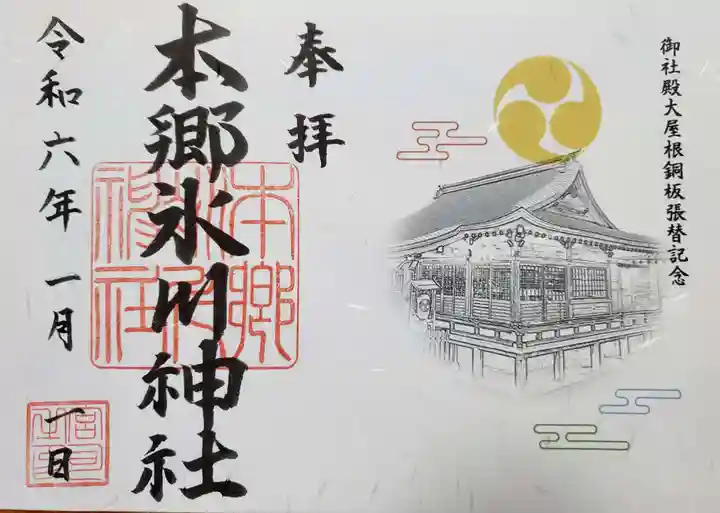 御社殿大屋根銅板張替記念
奉拝
本郷氷川神社
令和六年一月一日
本郷氷川神社